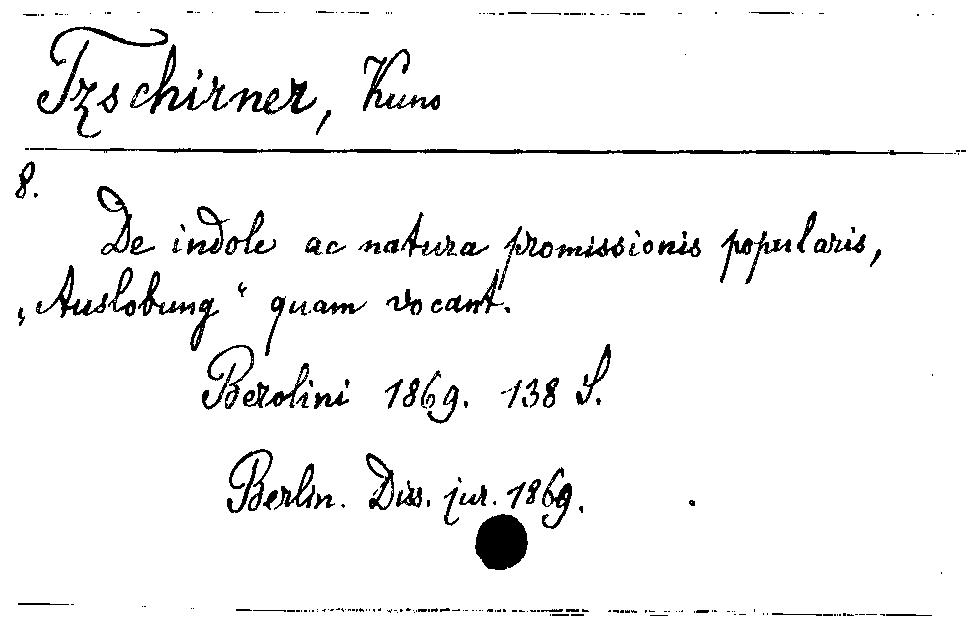 Tzschirner, Kuno
8.
De indole ac natura promissionis popularis,
„Auslobung“ quam vocant.
Berolini 1869. 138 S.
Berlin. Diss. jur. 1869.